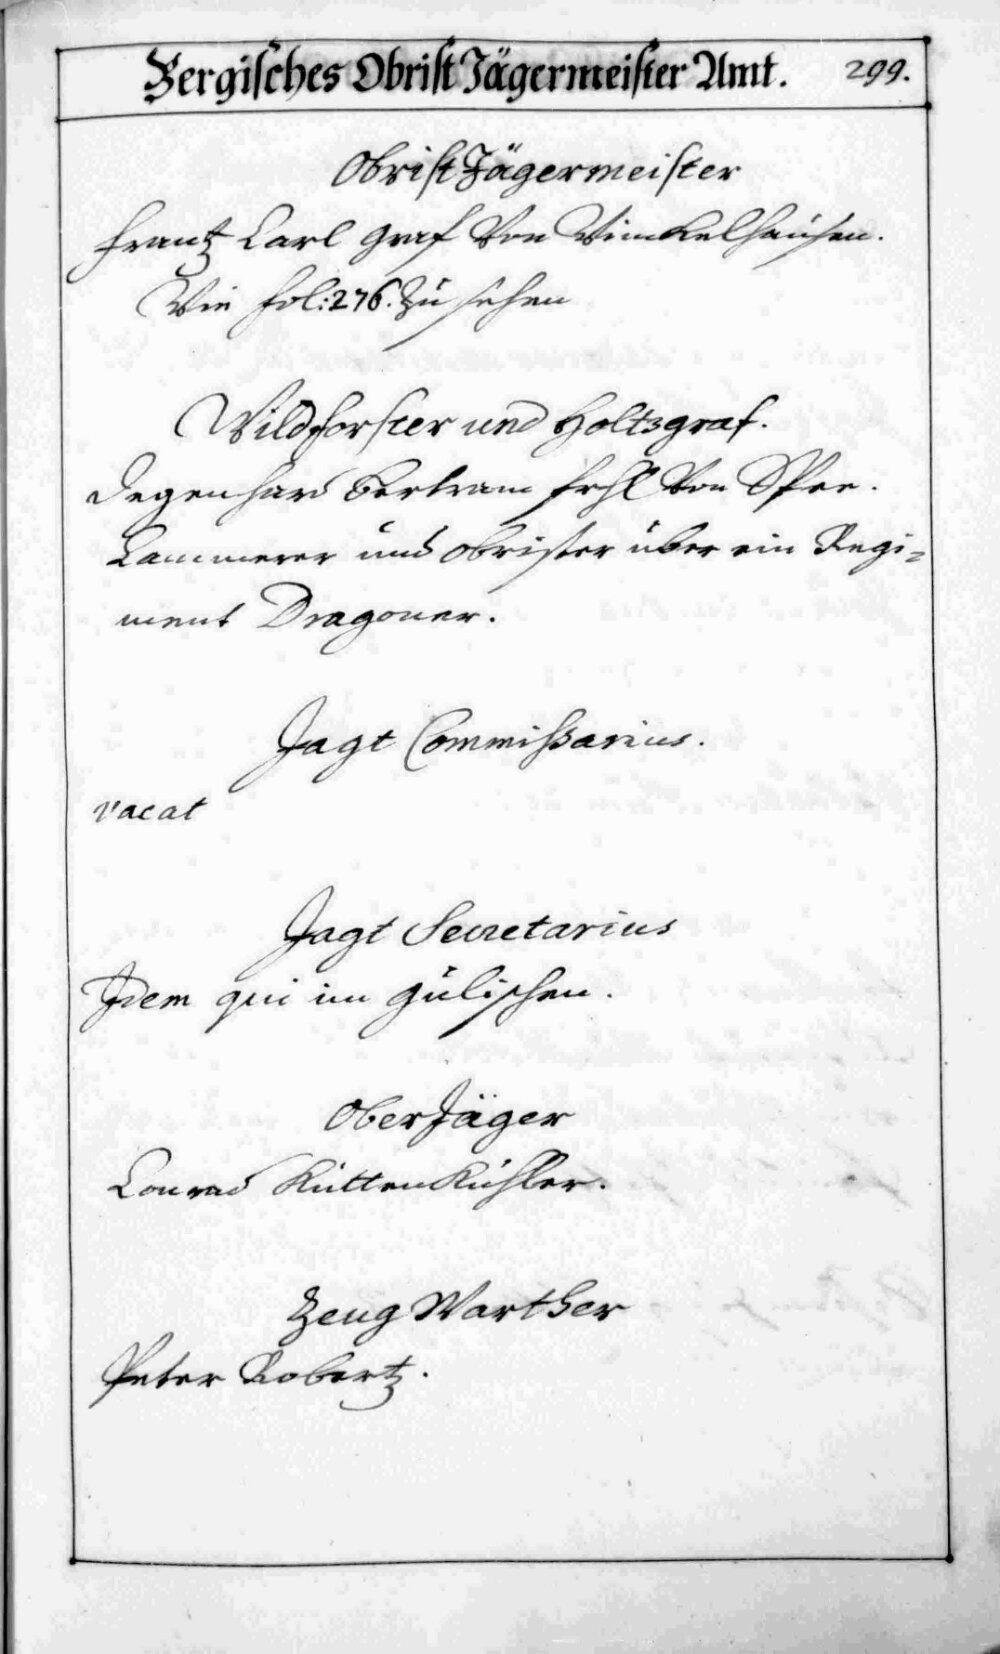 Bergisches Obrist Jägermeister Amt. 299.
Obrist Jägermeister
Frantz Carl Graf Von Winckelhausen.
Wie fol: 276. zu sehen
Wildforster und Holtzgraf.
Degenhard Bertram frhl Von Spee.
Cammerer und Obrister über ein Regi=
ment Dragoner.
Jagt Commißarius.
vacat
Jagt Secretarius
Idem qui im Gülischen.
Ober Jäger
Conrad Kütten
Zeug Warther
Peter Robertz.